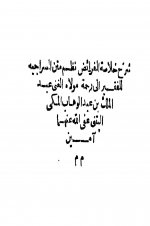 شرح خلاصة الفرائض نظم متن السراجيه
للفقير الى رحمة مولاه الغنى عبد
الملك بن عبد الوهاب المكى
الفتنى عفى الله عنهما
آمين
م م